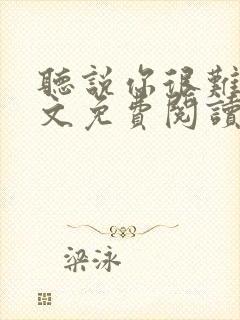 聽說你很難
文免費閱讀
梁泳